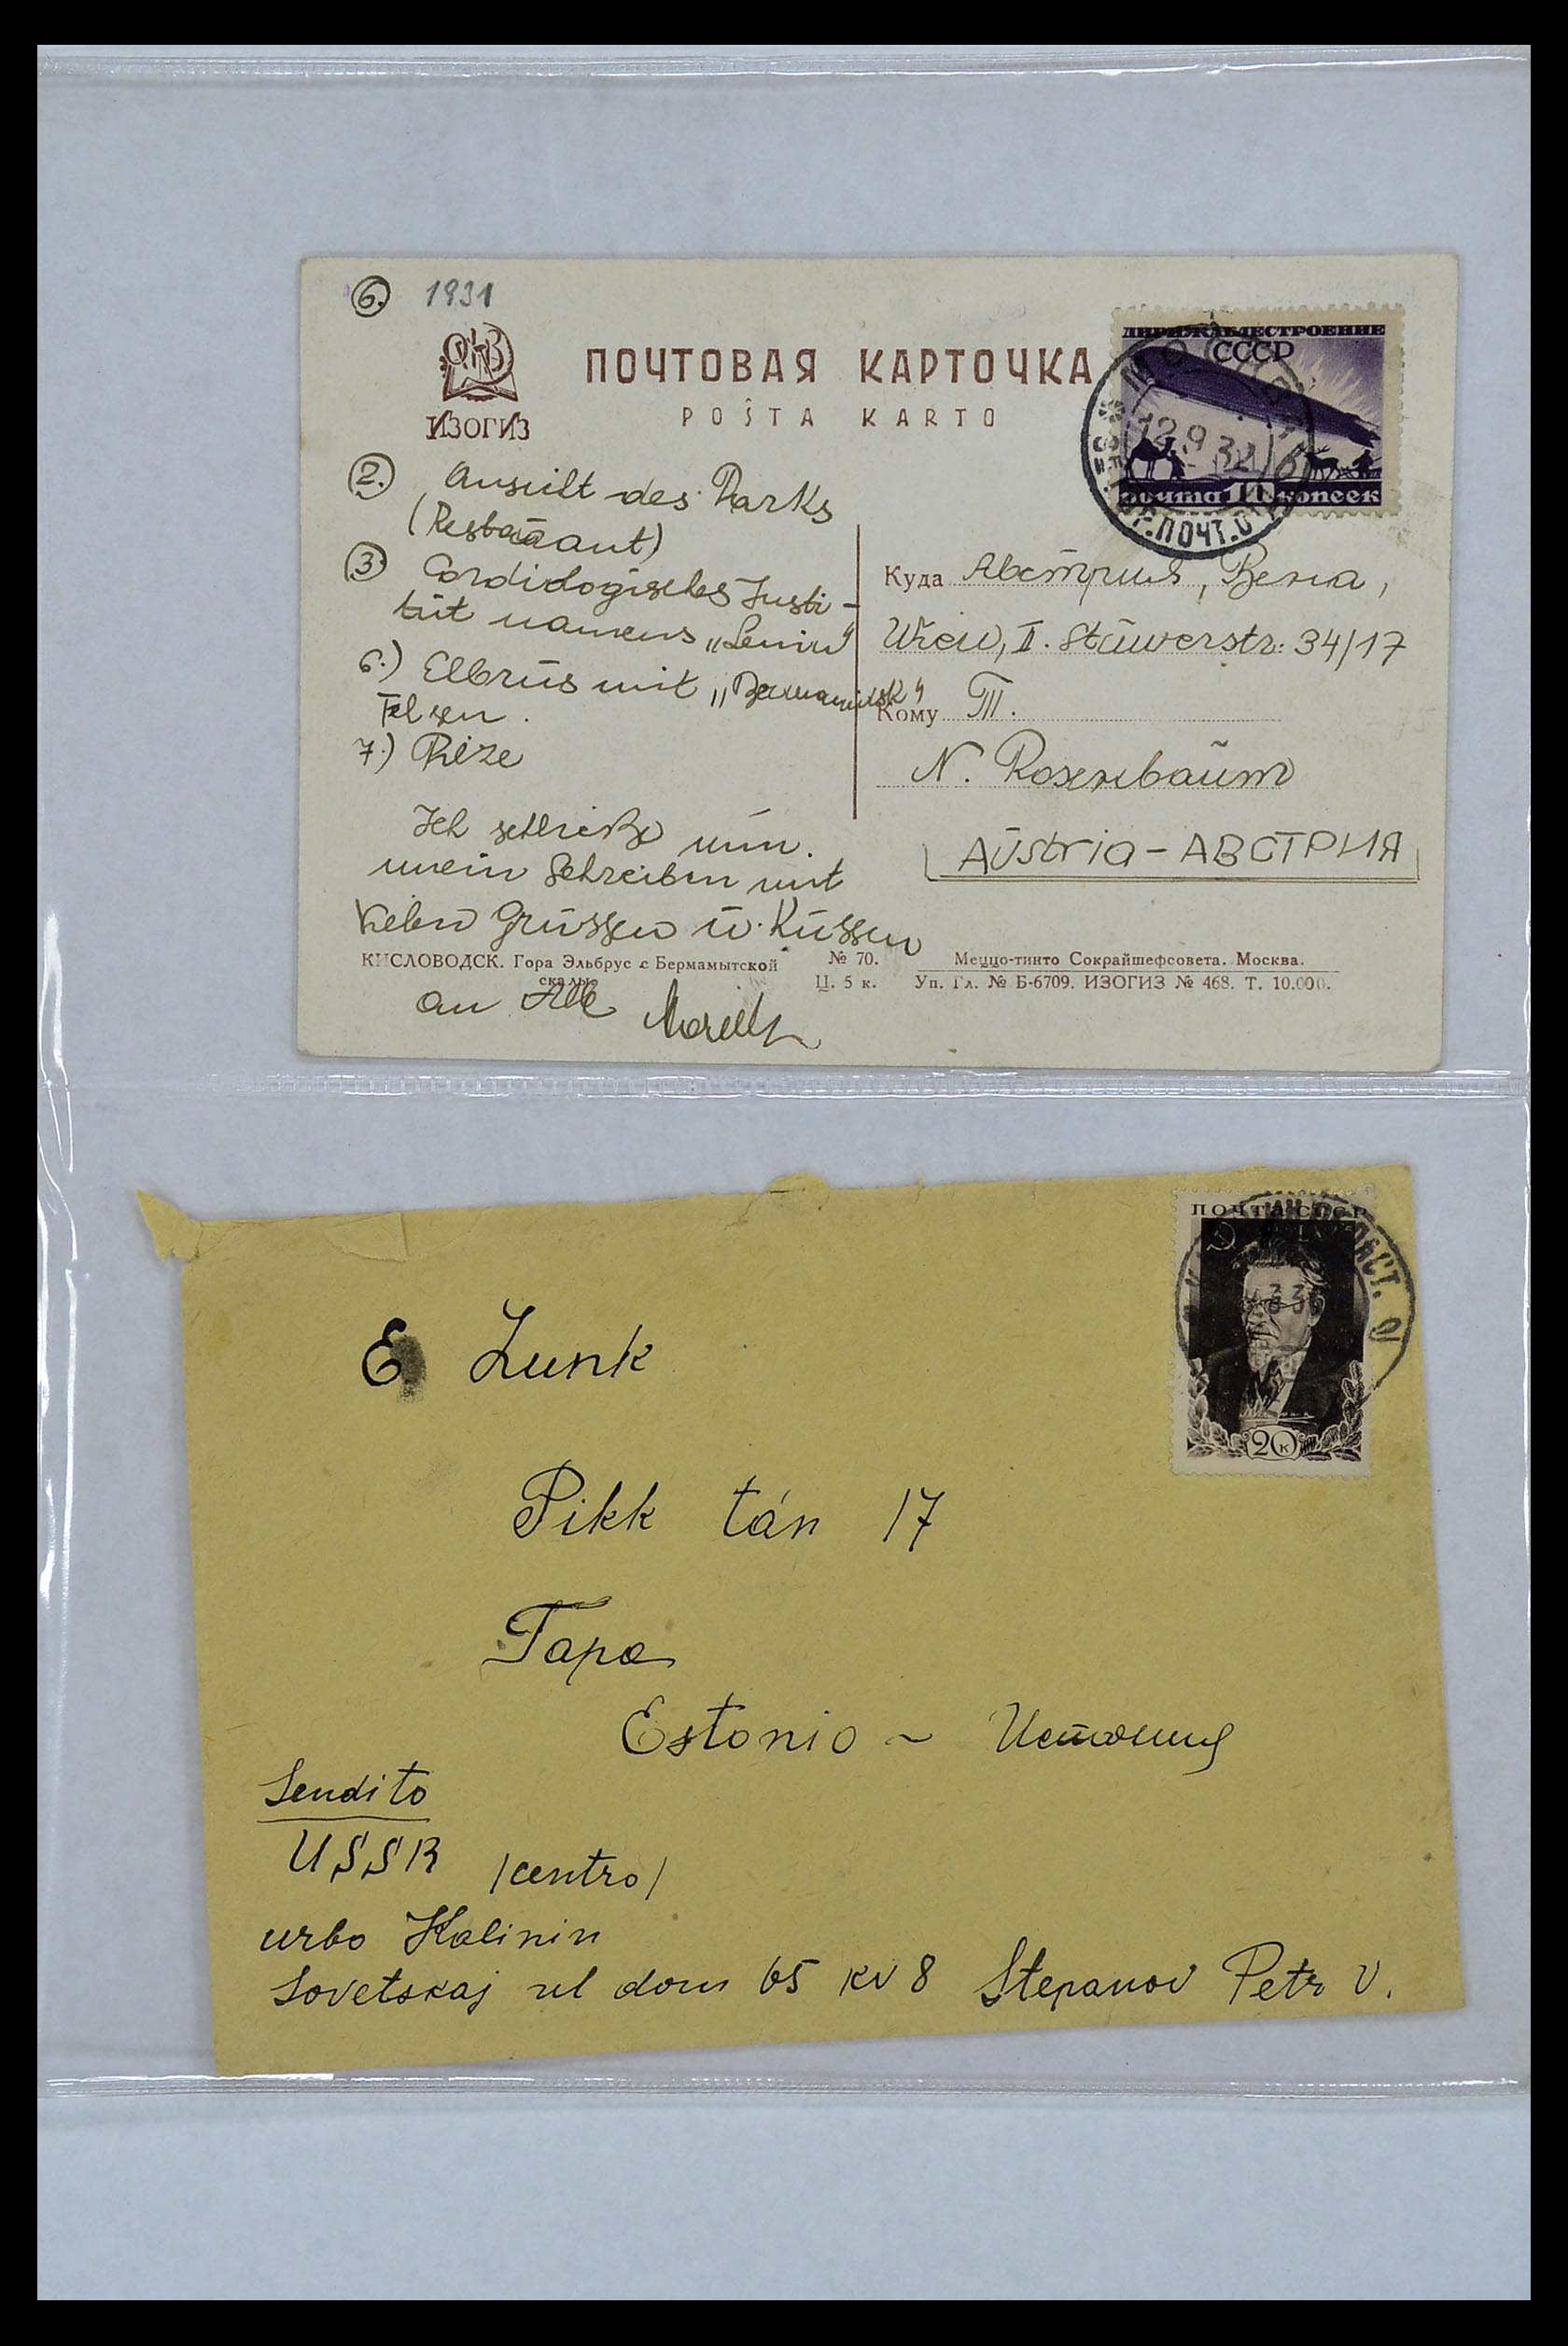 6. 1931
ИЗОГИЗ
ПОЧТОВАЯ КАРТОЧКА
POŜTA KARTO
ДИРИЖАБЛЕСТРОЕНИЕ
СССР
12 9 32
почта 1 копеек
ПОЧТ.
2. Ansicht des Parks
(Restaurant)
3 Cardiologisches Insti-
tut namens „Lenin"
6.) Elbrus mit
Felsen.
7.)
Ich schließe nun
mein Schreiben mit
lieben Grüssen u. Küssen
an Alle
Куда Австрия, Вена,
Wien, II. Stuwerstr. 34/17
Кому
N. Rosenbaum
Austria - АВСТРИЯ
КИСЛОВОДСК. Гора Эльбрус с Бермамытской
скалы
№ 70.
Ц. 5 к.
Меццо-тинто Сокрайшефсовета. Москва.
Уп. Гл. № Б-6709. ИЗОГИЗ № 468. Т. 10.000.
ПОЧТА СССР
20 к
E Zunk
Pikk tán 17
Tapa
Estonio ~ Истония
Sendito
USSR /centro/
urbo Kalinin
Sovetskaj ul dom 65 kv 8 Stepanov Petr V.